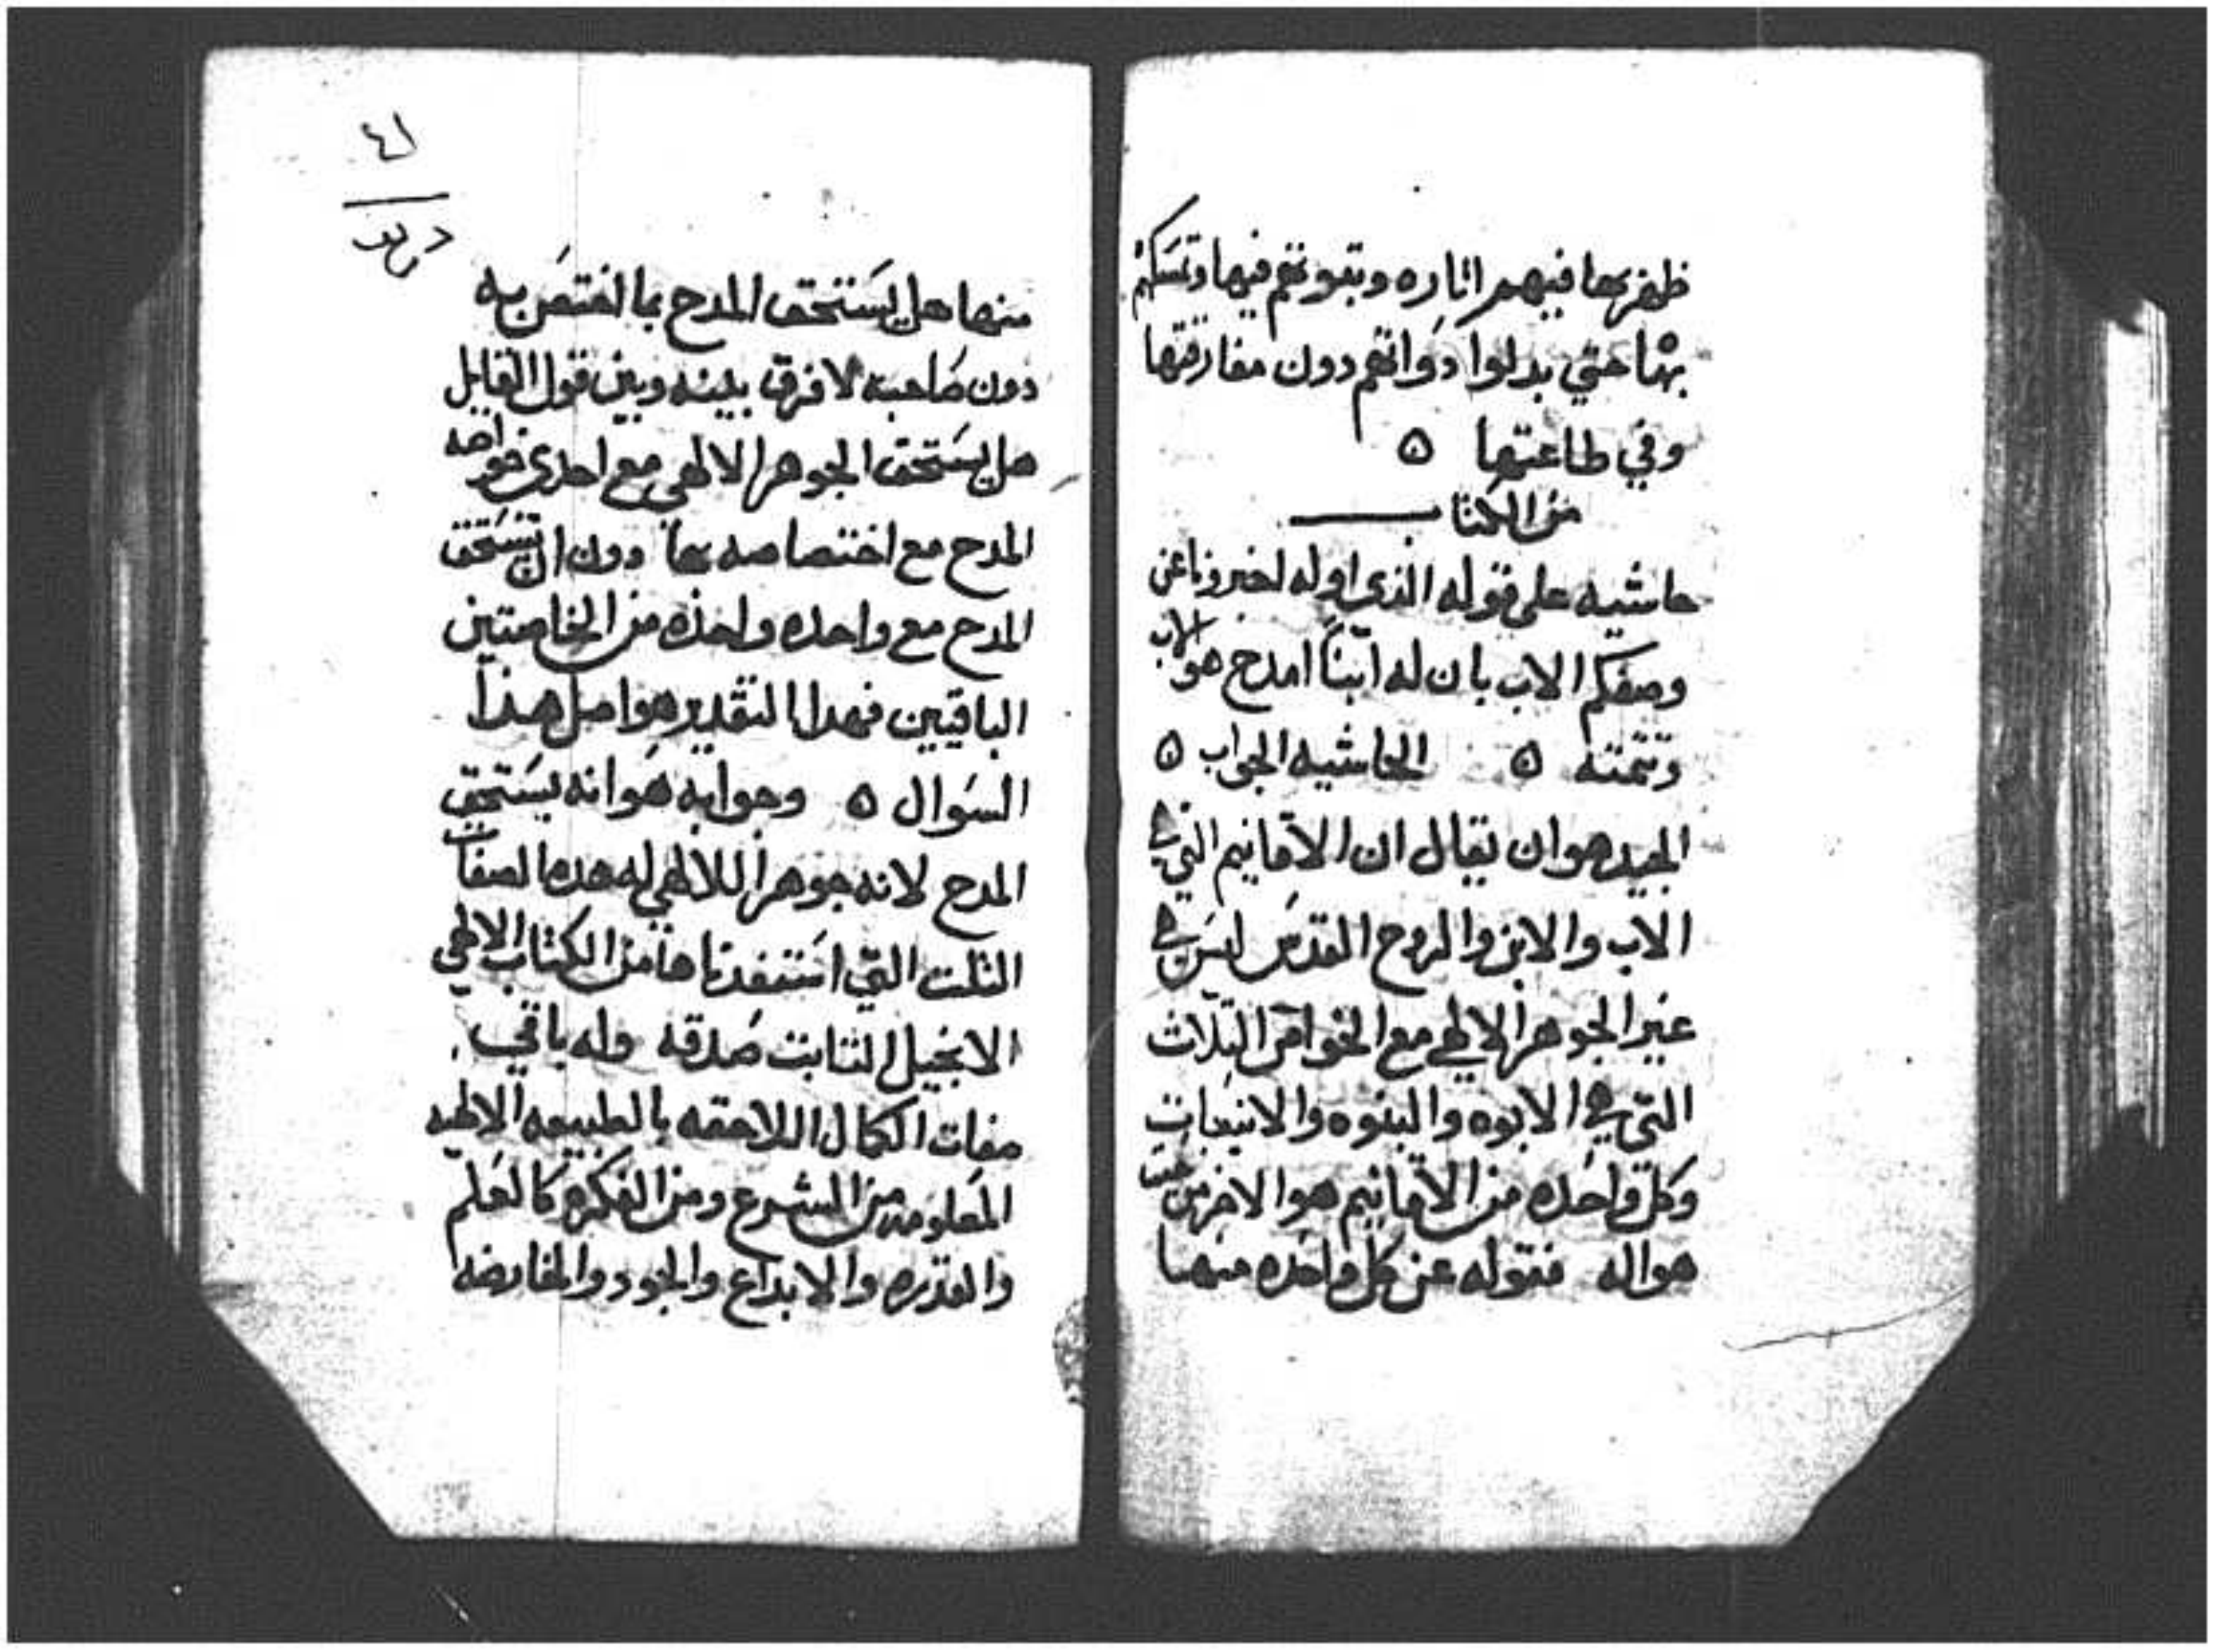 ظفر بها فيهم اناره وتبوتهم فيها وتمسكهم
بها حتي بدلوا دواتهم دون مفارقتها
وفي طاعتها ٥
من الكتاب
حاشيه على قوله الذي اوله اخبرونا عن
وصفكم الاب بان له ابناً امدح هو للاب
وتتمته ٥ الحاشيه الجواب ٥
الجيد هو ان يقال ان الاقانيم التي هي
الاب والابن والروح القدس ليس هي
غير الجوهر الالهي مع الخواص التلاث
التي هي الابوه والبنوه والانبعاث
وكل واحده من الاقانيم هو الاخر من حيث
هو اله فقوله عن كل واحده منها
٤١
منها هل يستحق المدح بما اختص به
دون صاحبه لا فرق بينه وبين قول القايل
هل يستحق الجوهر الالهي مع احدي خواصه
المدح مع اختصاصه بها دون ان يستحق
المدح مع واحده واحده من الخاصتين
الباقيتين فهدا التقدير هو اصل هذا
السوال ٥ وجوابه هو انه يستحق
المدح لانه جوهر الالهي له هده الصفات
التلت التي استفدناها من الكتاب الالهي
الانجيل التابت صدقه وله باقي
صفات الكمال اللاحقه بالطبيعه الالهيه
المعلومه من الشرع ومن الفكره كالعلم
والقدره والابداع والجود والافاضه